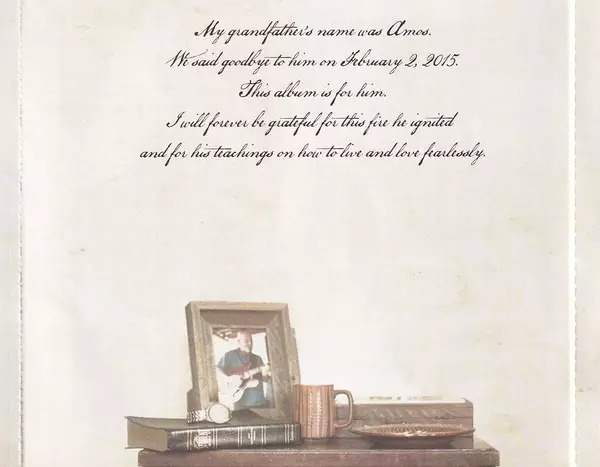 My grandfather's name was Amos.
We said goodbye to him on February 2, 2015.
This album is for him.
I will forever be grateful for this fire he ignited
and for his teachings on how to live and love fearlessly.